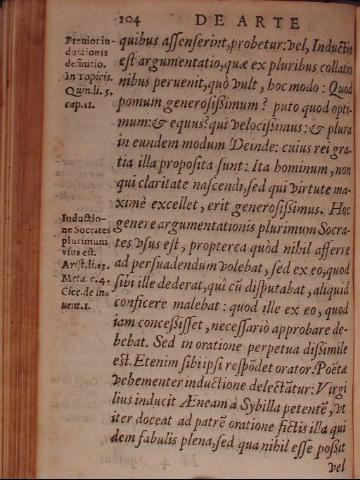 104 DE ARTE
Breuior in-
ductionis
definitio.
In Topicis.
Quin. li. 5.
cap. 11.
quibus assenserint, probetur: vel, Inductio
est argumentatio, quæ ex pluribus collatio
nibus peruenit, quò vult, hoc modo: Quod
pomum generosissimum? puto quod opti-
mum: & equus? qui velocissimus: & plura
in eundem modum Deinde: cuius rei gra-
tia illa proposita sunt: Ita hominum, non
qui claritate nascendi, sed qui virtute ma-
ximè excellet, erit generosissimus. Hoc
Inductio-
ne Socrates
plurimum
vsus est.
Arist. li. 13.
Meta. c. 4.
Cice. de in-
uent. 1.
genere argumentationis plurimum Socra-
tes vsus est, propterea quòd nihil afferre
ad persuadendum volebat, sed ex eo, quod
sibi ille dederat, qui cũ disputabat, aliquid
conficere malebat: quod ille ex eo, quod
iam concessisset, necessariò approbare de-
bebat. Sed in oratione perpetua dissimile
est. Etenim sibi ipsi respõdet orator. Poëtæ
vehementer inductione delectãtur: Virgi
lius inducit Æneam à Sybilla petentẽ, vt
iter doceat ad patrẽ oratione fictis illa qui
dem fabulis plena, sed qua nihil esse possit
vel